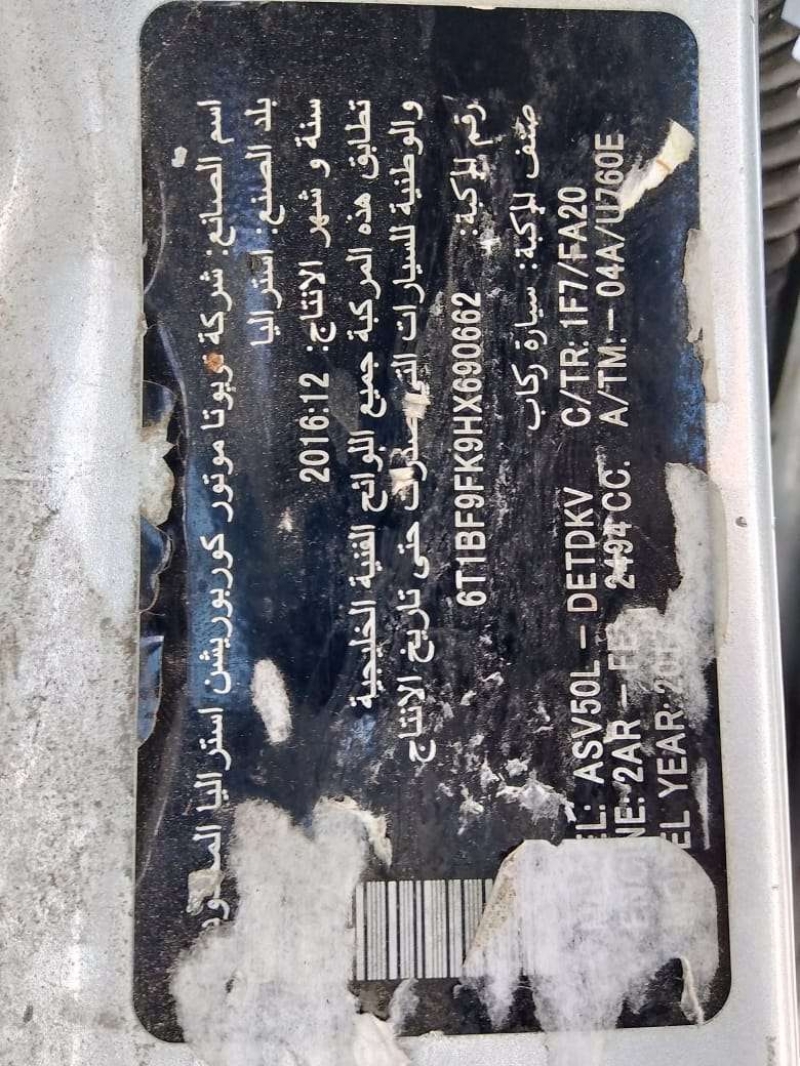 اسم الصانع: شركة تويوتا موتور كوربوريشن استراليا
بلد الصنع: استراليا
سنة و شهر الانتاج: 2016:12
تطابق هذه المركبة جميع اللوائح الفنية الخليجية
والوطنية للسيارات التي صدرت حتى تاريخ الانتاج
رقم المركبة: 6T1BF9FK9HX690662
صنف المركبة: سيارة ركاب
ASV50L – DETDKV C/TR: 1F7/FA20
2AR – FE 2494 CC. A/TM: – 04A/U760E
YEAR: